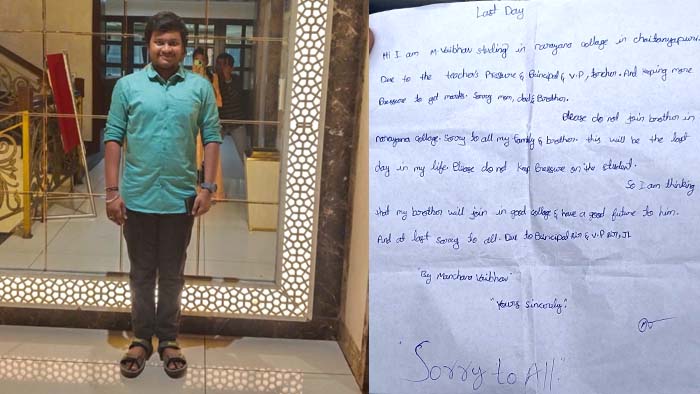 Last Day
Hi I am M. Vaibhav studing in narayana college in chaitanyapuri.
Due to the teachers Pressure & Principal & V.P, torcher. And keping more
Pressure to get marks. Sorry mom, dad & Brother.
Please do not join brother in
narayana college. Sorry to all my family & brother. this will be the last
day in my life. Please do not keep Pressure on the student.
So I am thinking
that my brother will join in good college & have a good future to him.
And at last sorry to all. Due to Principal &
"By Manchara Vaibhav"
"Yours Sincerely."
"Sorry to All."